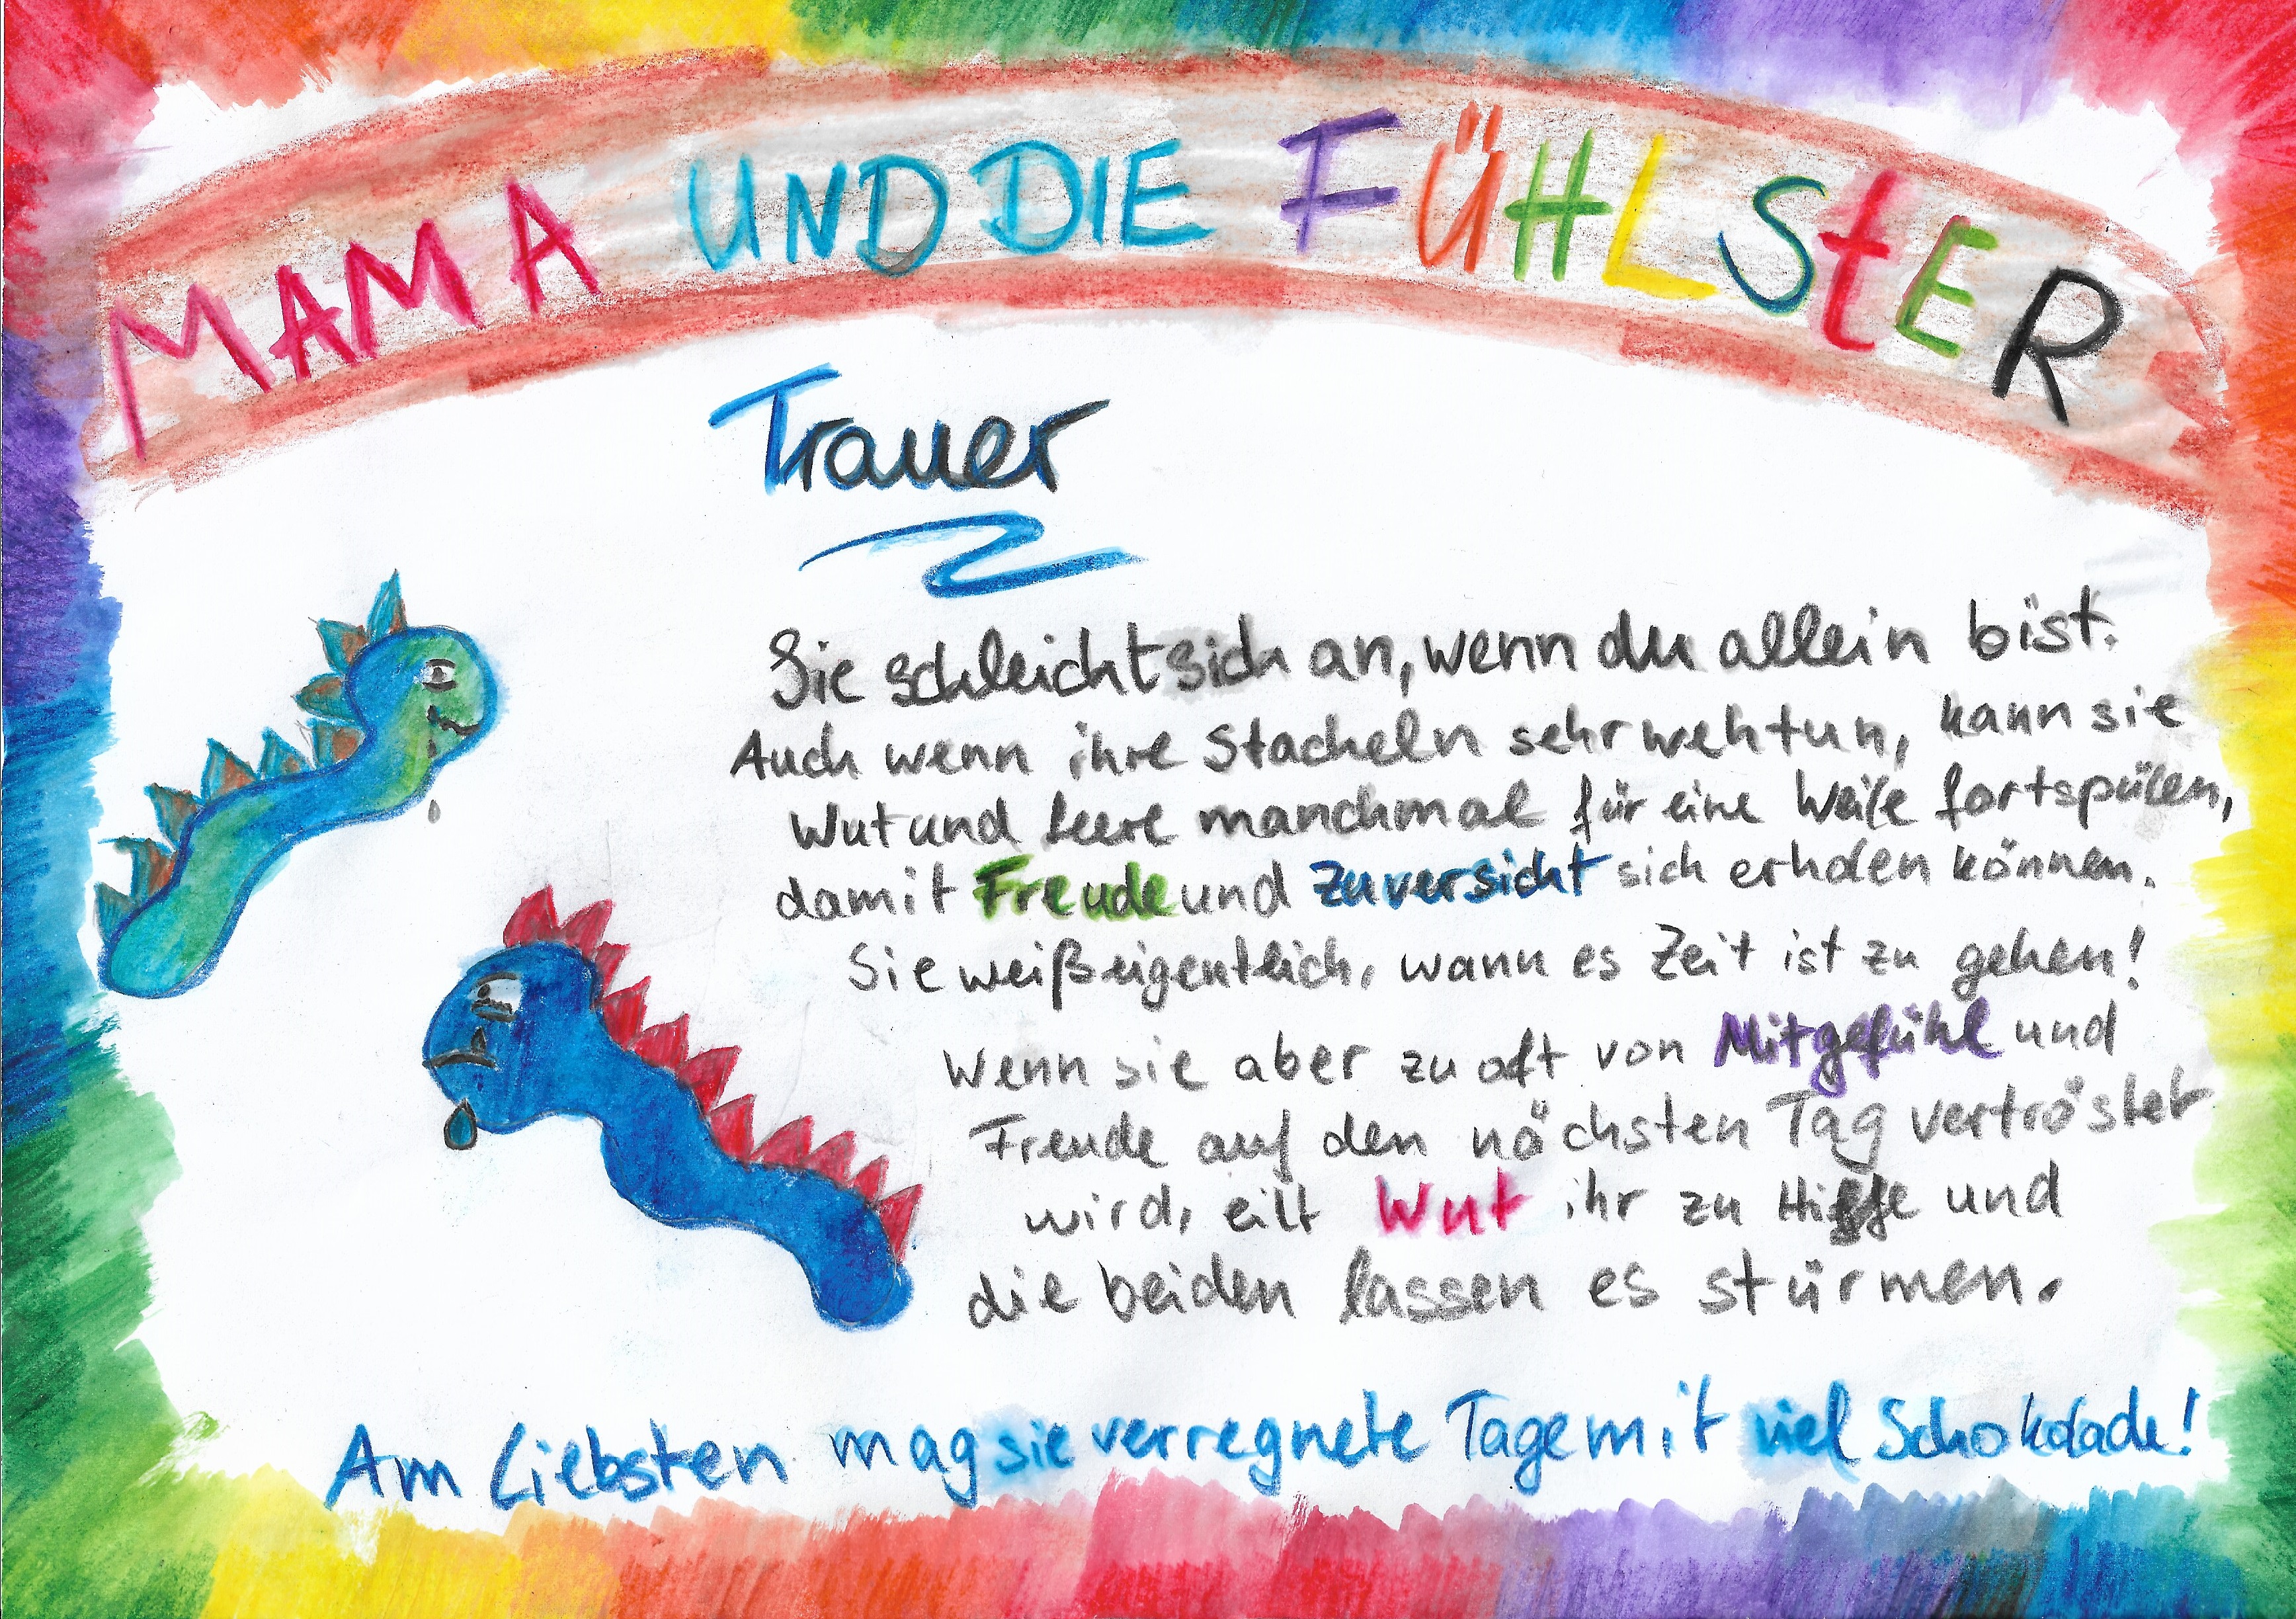 MAMA UND DIE FÜHLStER
Trauer
Sie schleicht sich an, wenn du allein bist.
Auch wenn ihre Stacheln sehr wehtun, kann sie
Wut und Leere manchmal für eine Weile fortspülen,
damit Freude und Zuversicht sich erholen können.
Sie weiß eigentlich, wann es Zeit ist zu gehen!
Wenn sie aber zu oft von Mitgefühl und
Freude auf den nächsten Tag vertröstet
wird, eilt Wut ihr zu Hilfe und
die beiden lassen es stürmen.
Am Liebsten mag sie verregnete Tage mit viel Schokolade!